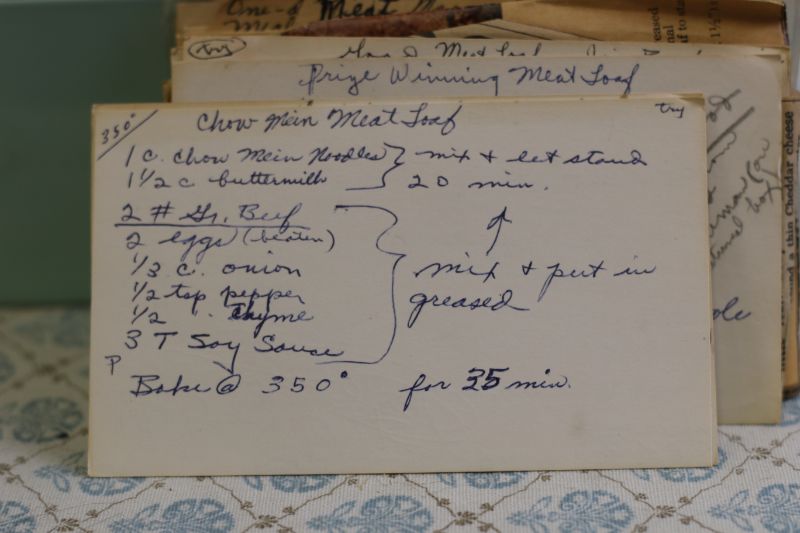 One-d Meat
try
Meat Loaf
Prize Winning Meat Loaf
350°
Chow Mein Meat Loaf
try
1 c. Chow Mein Noodles } mix & let stand
1 1/2 c buttermilk } 20 min.
2 # Gr. Beef
2 eggs (beaten)
1/3 c. onion
1/2 tsp pepper
1/2 . thyme
3 T Soy Sauce
mix & put in
greased
P
Bake @ 350° for 35 min.
a thin Cheddar cheese